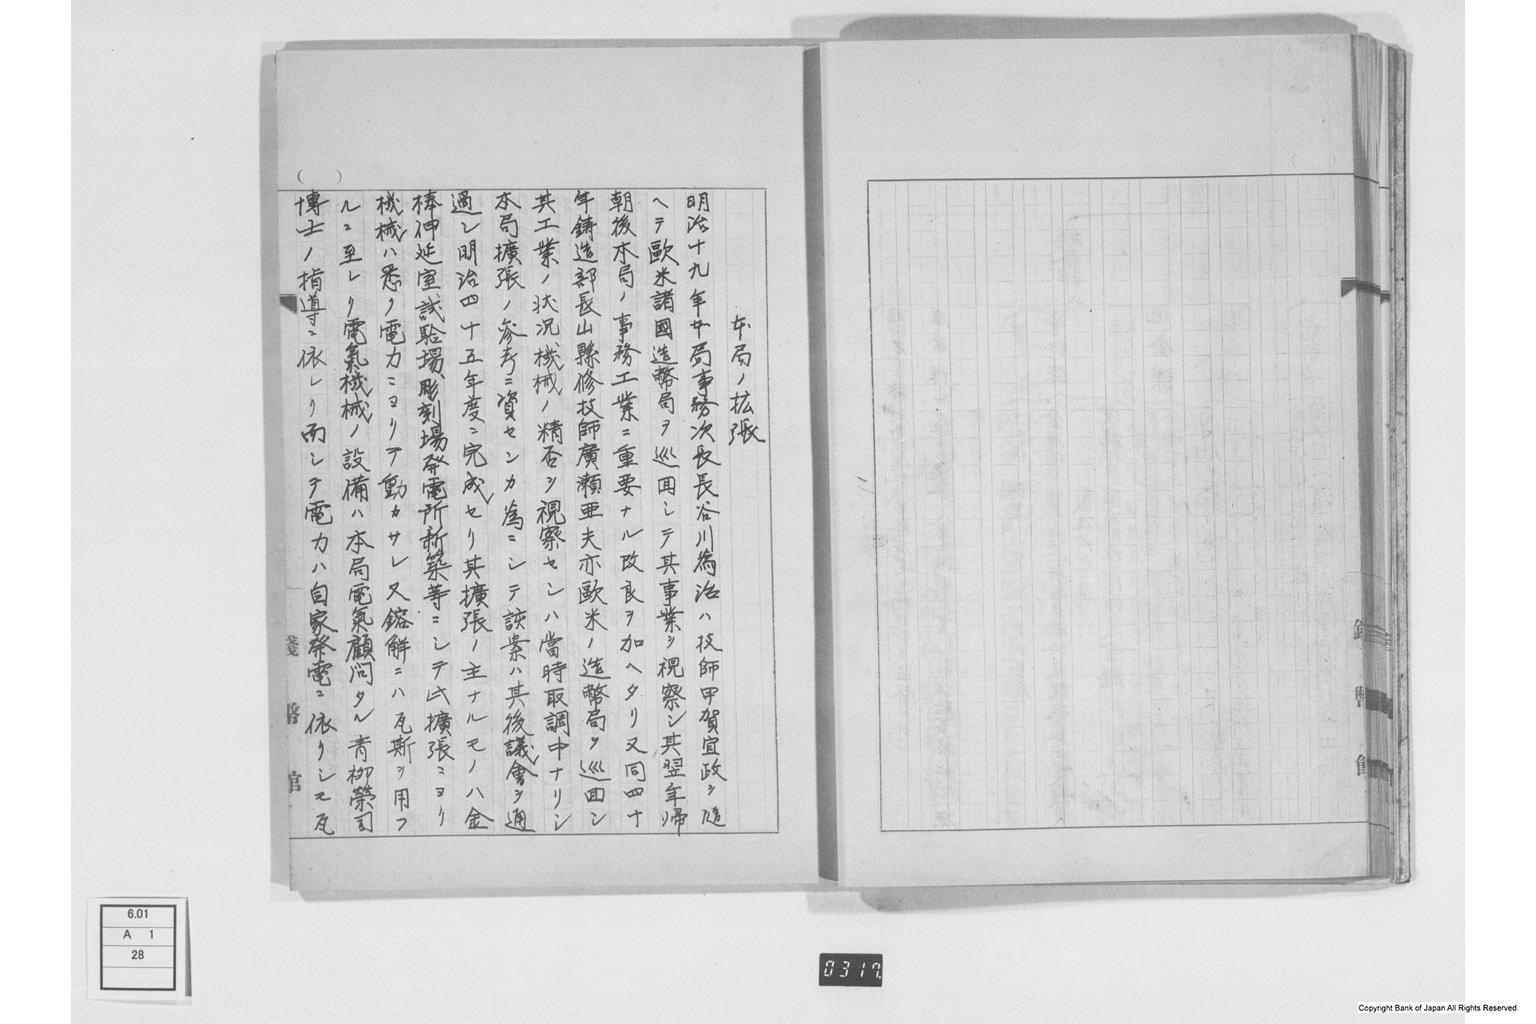 本局ノ拡張
明治十九年本局事務次長長谷川為治ハ技師甲賀宜政ヲ随
ヘテ歐米諸國造幣局ヲ巡囬シテ其事業ヲ視察シ其翌年帰
朝後本局ノ事務工業ニ重要ナル改良ヲ加ヘタリ又同四十
年鋳造部長山縣修技師廣瀬亜夫亦歐米ノ造幣局ヲ巡囬シ
其工業ノ状况機械ノ精否ヲ視察セシハ當時取調中ナリシ
本局擴張ノ参考ニ資センカ為ニシテ該案ハ其後議會ヲ通
過シ明治四十五年度ニ完成セリ其擴張ノ主ナルモノハ金
棒伸延室試驗場彫刻場発電所新築等ニシテ此擴張ニヨリ
機械ハ悉ク電力ニヨリテ動カサレ又鎔解ニハ瓦斯ヲ用フ
ルニ至レリ電氣機械ノ設備ハ本局電氣顧问タル青柳榮司
博士ノ指導ニ依レリ而シテ電力ハ自家発電ニ依リシモ瓦
( )
錢幣館
6.01
A 1
28
0317
Copyright Bank of Japan All Rights Reserved.